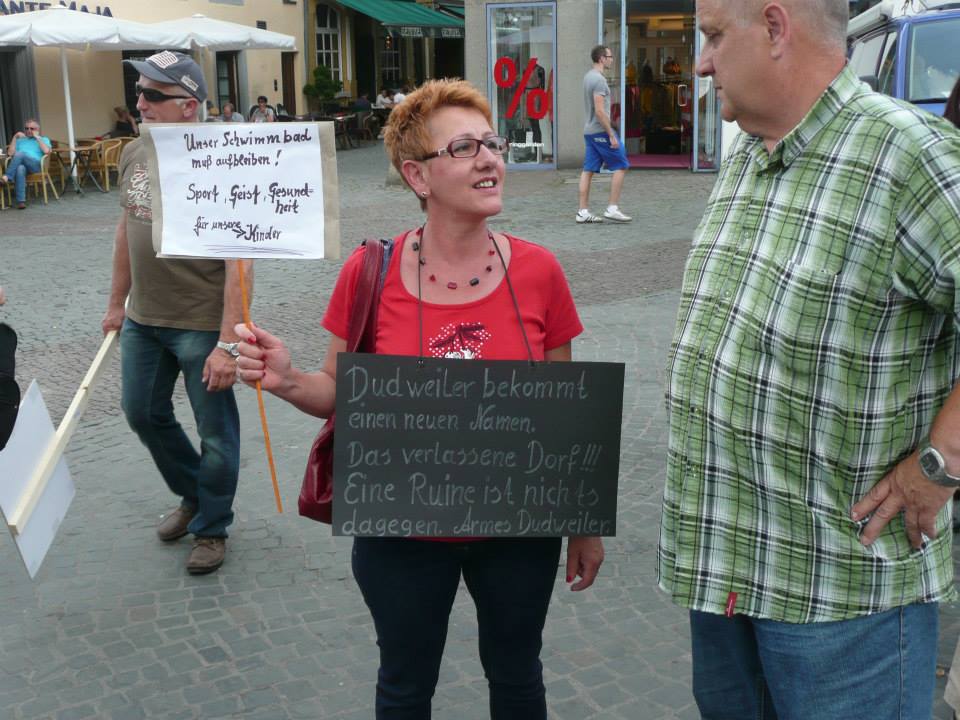 ANTE MAJA
%
Unser Schwimmbad
muß aufbleiben!
Sport, Geist, Gesund-
heit
für unsere → Kinder
Dudweiler bekommt
einen neuen Namen.
Das verlassene Dorf!!!
Eine Ruine ist nichts
dagegen. Armes Dudweiler.